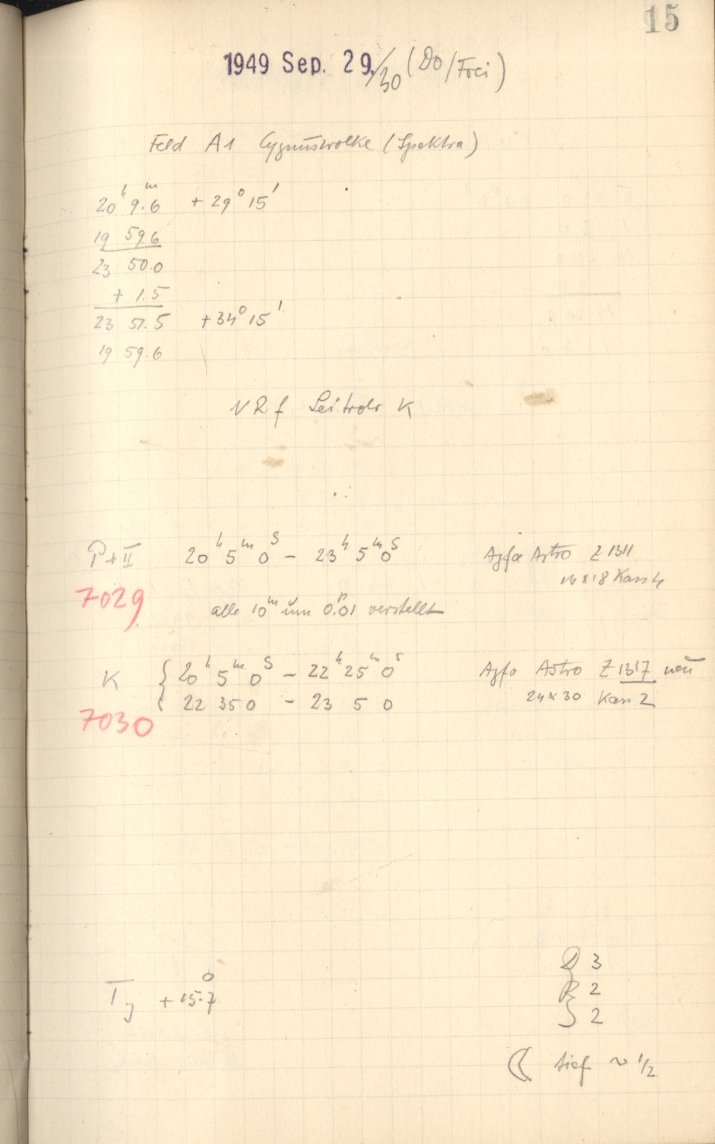 15
1949 Sep. 29/30 (Do/Frei)
Feld A1 Cygnuswolke (Spektra)
20ʰ 9.6ᵐ + 29° 15'
19 59.6
23 50.0
+ 1.5
23 51.5 + 34° 15'
19 59.6
f Leitrohr K
P+II 20ʰ 5ᵐ 0ˢ – 23ʰ 5ᵐ 0ˢ Agfa Astro Z 1311
7029 18 Kass 4
alle 10ᵐ um 0.01 verstellt
K { 20ʰ 5ᵐ 0ˢ – 22ʰ 25ᵐ 0ˢ Agfa Astro Z 1317 neu
22 35 0 – 23 5 0 24×30 Kass 2
7030
3
T + 15.7° R 2
2
☾ tief ~ 1/2